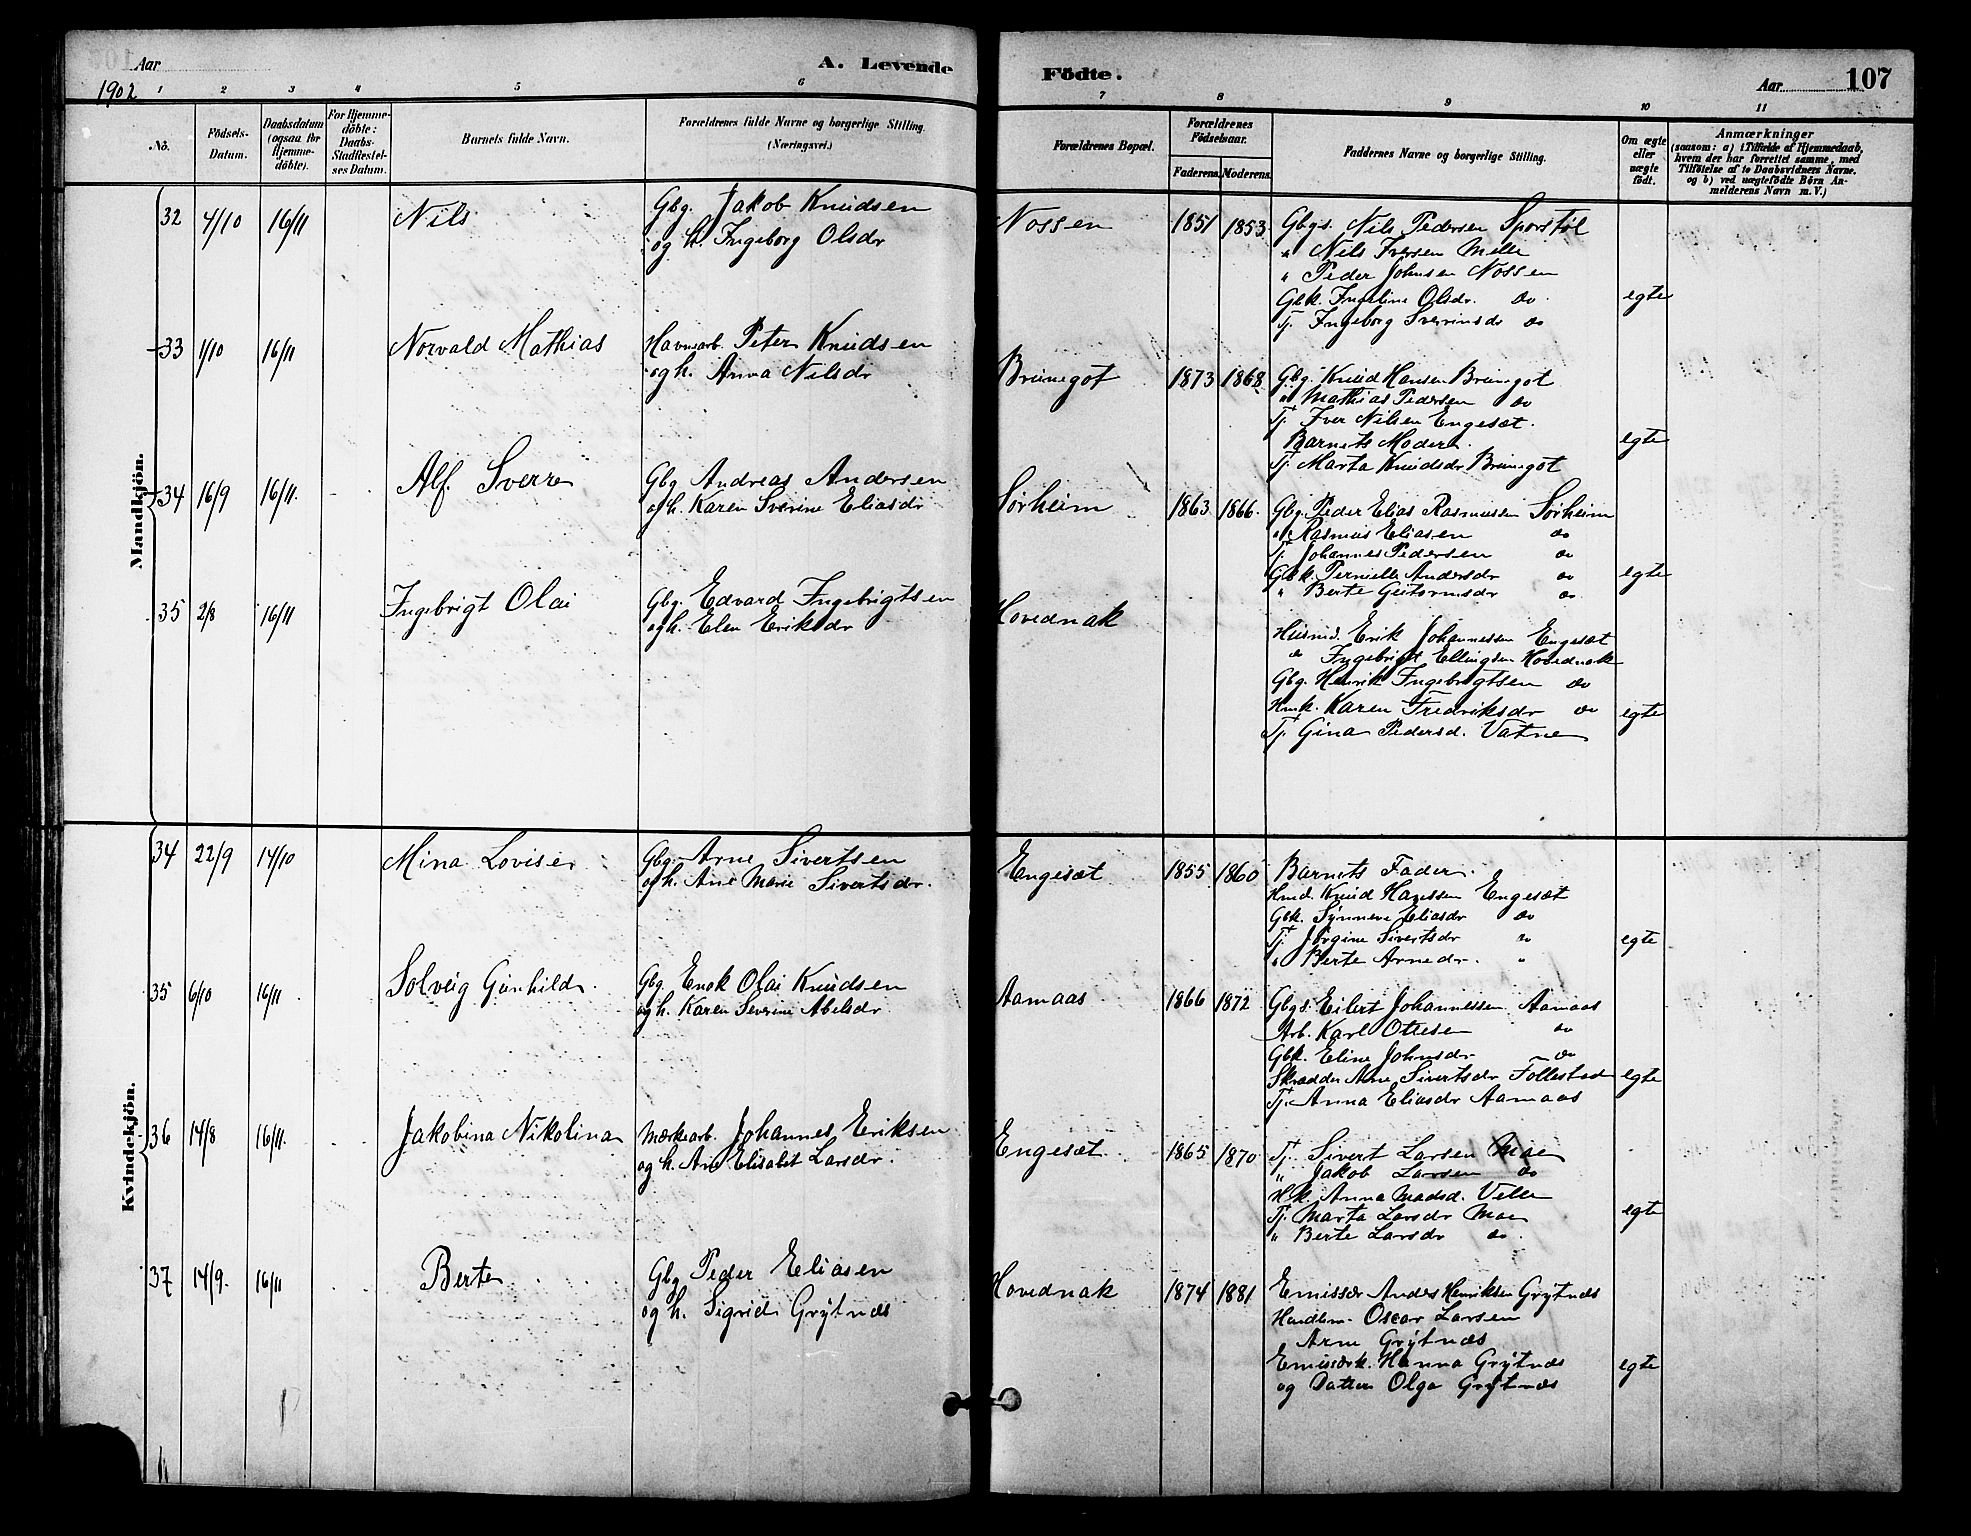 Aar
1902
A. Levende
Födte.
Aar
107
1
2
3
4
5
6
7
8
9
10
11
No.
Födsels-
Datum.
Daabsdatum
(ogsaa for
Hjemme-
döbte).
For Hjemme-
döbte:
Daabs-
Stadfæstel-
ses Datum.
Barnets fulde Navn.
Forældrenes fulde Navne og borgerlige Stilling.
(Næringsvei.)
Forældrenes Bopæl.
Forældrenes
Födselsaar.
Faderens. Moderens.
Faddernes Navne og borgerlige Stilling.
Om ægte
eller
uægte
födt.
Anmærkninger
(saasom: a) i Tilfælde af Hjemmedaab,
hvem der har forrettet samme, med
Tilföielse af to Daabsvidners Navne.
og b) ved uægtefödte Börn An-
melderens Navn m. V.)
Mandkjön.
32 4/10 16/11 Nils
Gbg. Jakob Knudsen
og h. Ingeborg Olsdr
Nossen 1851 1853
Gbgs. Nils Pedersen Sporstøl
" Nils Iversen Melle
" Peder Johnsen Nossen
Gbk. Ingeline Olsdr. do
Tj. Ingeborg Sverinsdr do
egte
33 1/10 16/11 Norvald Mathias
Havnearb. Peter Knudsen
og h. Anna Nilsdr
Brunegot 1873 1868
Gbg. Knud Hansen Brunegot
" Mathias Pedersen do
Tj. Iver Nilsen Engesæt.
Barnets Moder
Tj. Marta Knudsdr Brunegot
egte
34 16/9 16/11. Alf Sverre
Gbg Andreas Andersen
og h. Karen Sverine Eliasdr
Sørheim 1863 1866
Gbg. Peder Elias Rasmussen Sørheim
" Rasmus Eliasen do
Tj. Johannes Pedersen do
Gbk. Pernille Andersdr do
" Berte Guttormsdr do
egte
35 2/8 16/11 Ingebrigt Olai
Gbg. Edvard Ingebrigtsen
og h. Elen Eriksdr
Hovednak
Husmd. Erik Johannessen Engesæt
do Ingebrigt Ellingsen Hovednak
Gbg. Henrik Ingebrigtsen do
Hmk. Karen Fredriksdr do
Tj. Gina Pedersd. Vatne
egte
Kvindekjön.
34 22/9 14/10 Mina Lovise
Gbg. Arne Sivertsen
og h. Ane Marie Sivertsdr.
Engesæt 1855 1860
Barnets Fader.
Hmd. Knud Hanssen Engesæt
Gbk. Synneve Eliasdr do
Tj. Jørgine Sivertsdr "
" Berte Arnedr. "
egte
35 6/10 16/11 Solveig Gunhild
Gbg. Enok Olai Knudsen
og h. Karen Severine Abelsdr
Aamaas 1866 1872
Gbgs. Eilert Johannessen Aamaas
Arb. Karl Ottesen do
Gbk. Eline Johnsdr do
Skrædder Ane Sivertsdr Follestad
Tj. Anna Eliasdr Aamaas
egte
36 14/8 16/11 Jakobina Nikolina
Mærkearb. Johannes Eriksen
og h. Ane Elisabet Larsdr.
Engesæt 1865 1870
Tj. Sivert Larsen Moe
" Jakob Larsen do
H.k. Anna Madsd. Velle
Tj. Marta Larsdr Moe
" Berte Larsdr do
egte
37 14/9. 16/11 Berte
Gbg Peder Eliasen
og h. Sigrid Grytnæs
Hovednak 1874 1881
Emissær Anders Henriksen Grytnæs
Handlem. Oscar Larsen
Arne Grytnæs
Emissærk. Hanna Grytnæs
og Datter Olga Grytnæs
egte